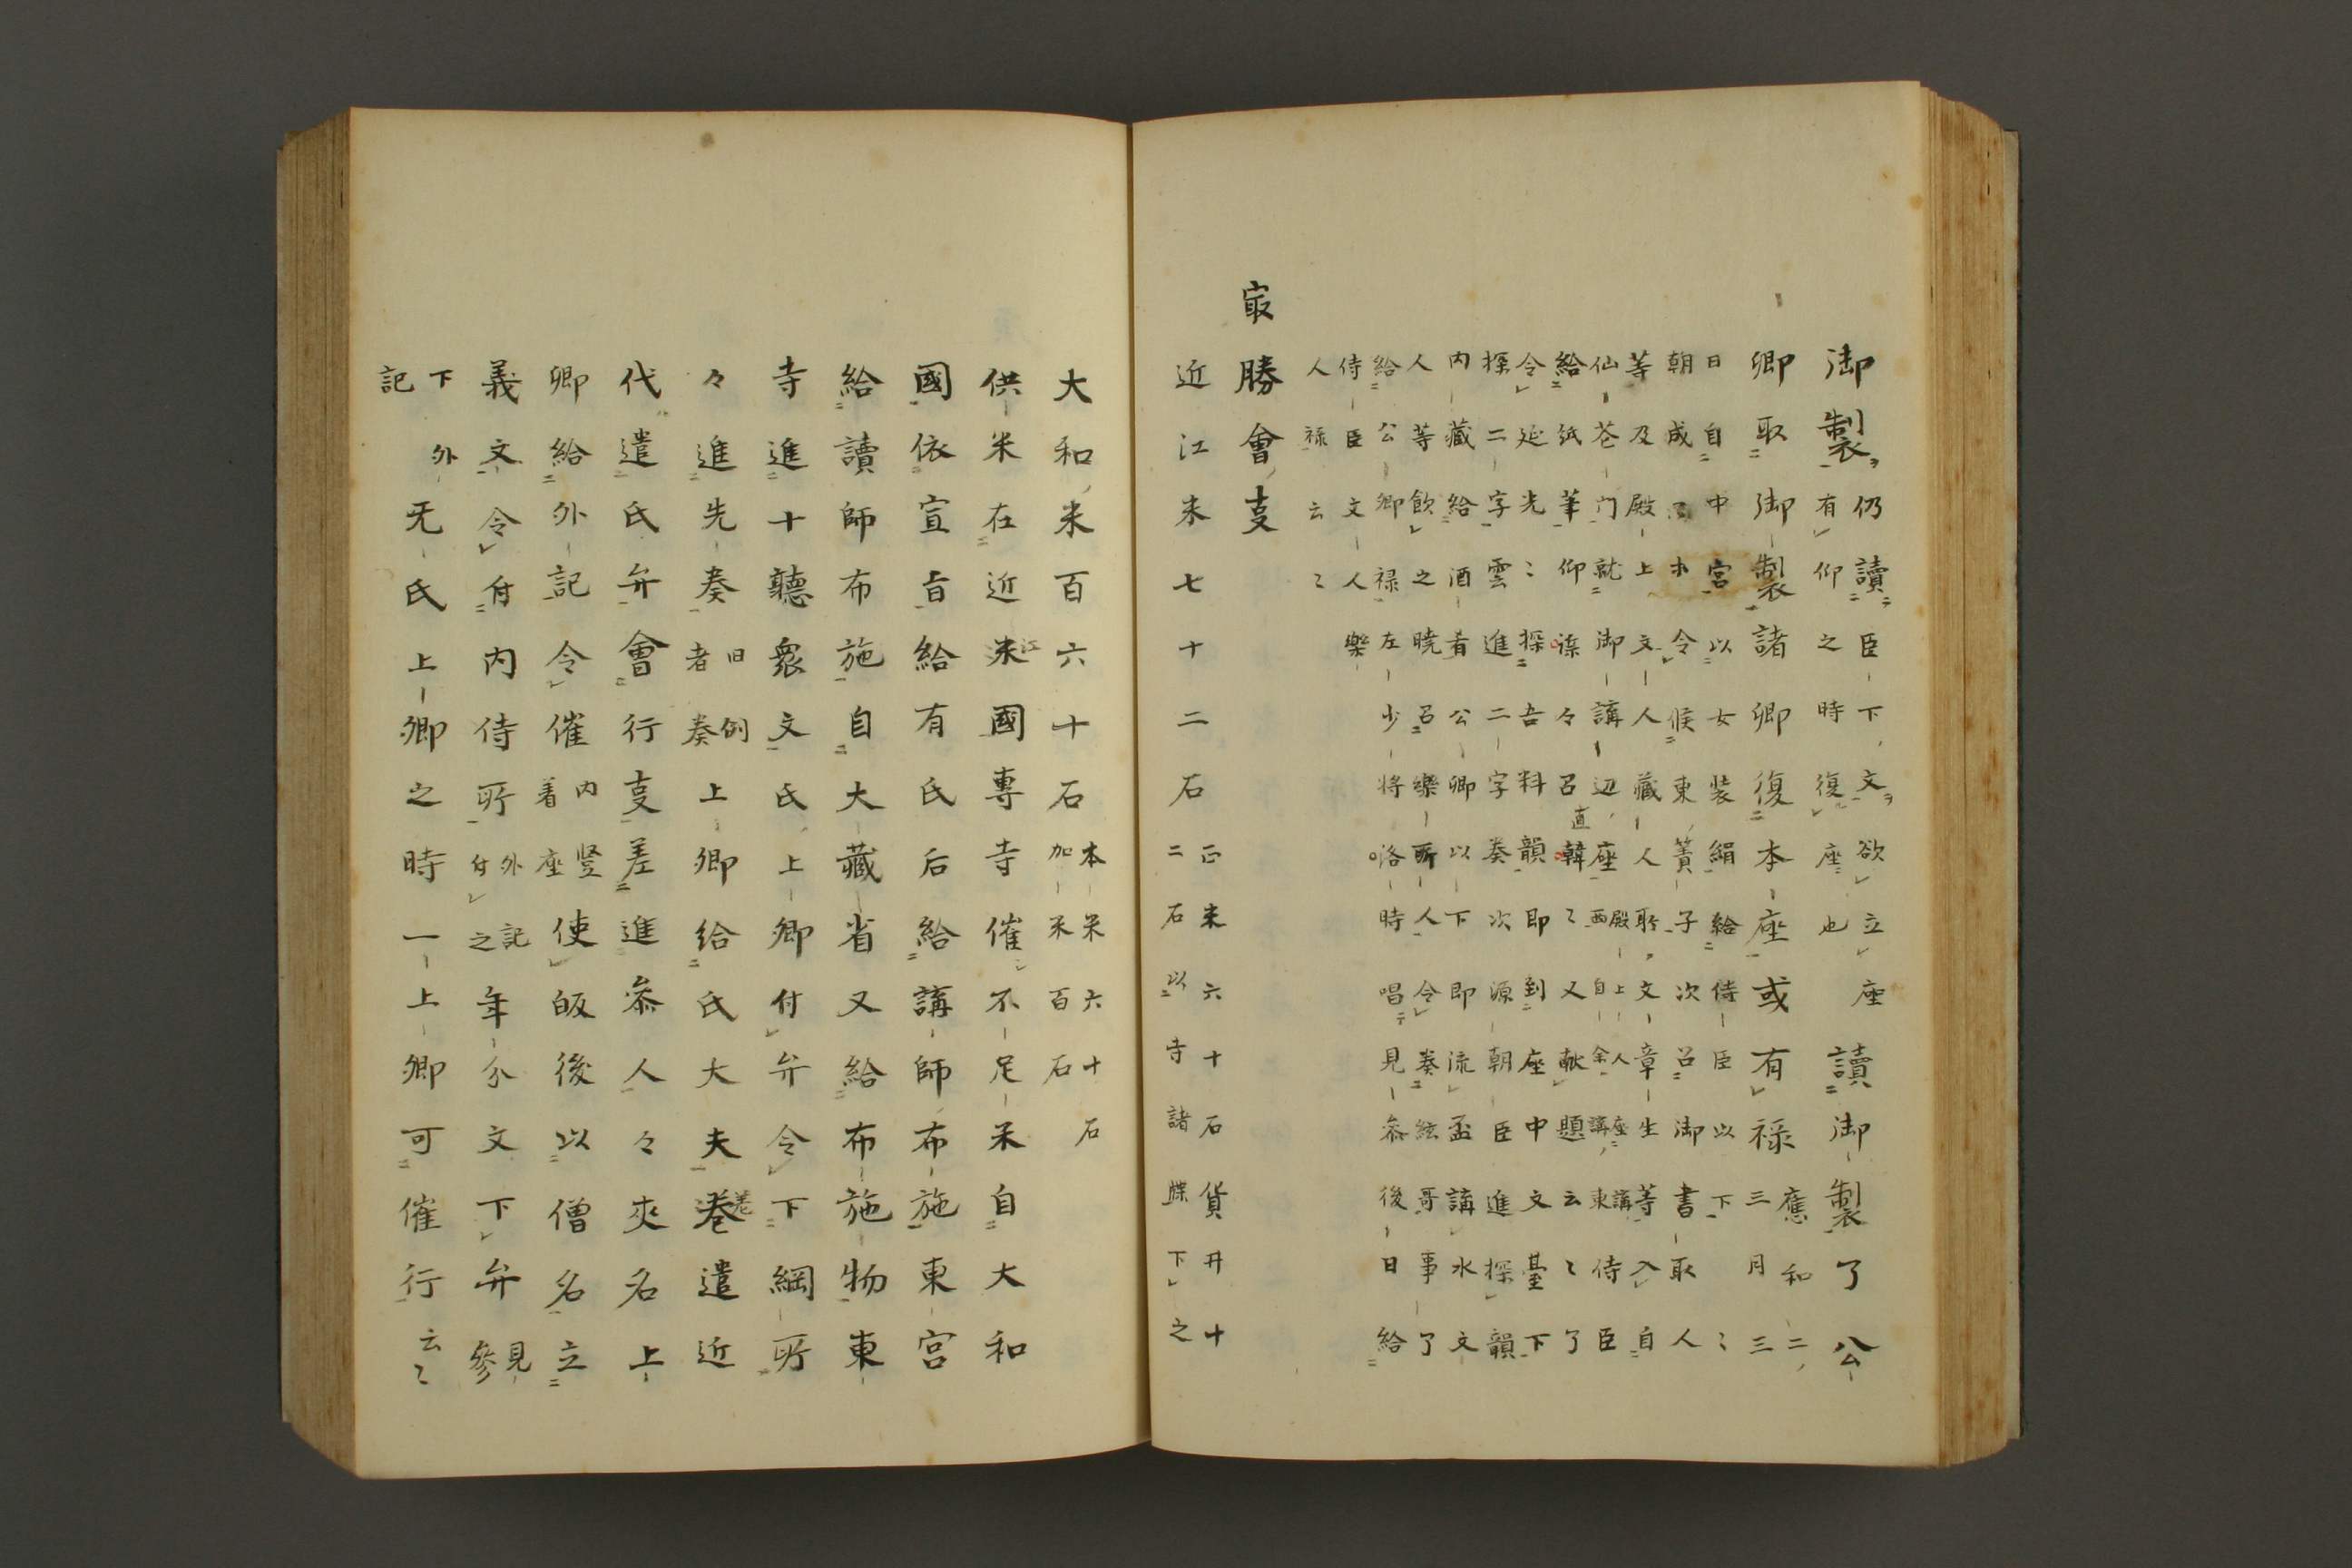 御製仍讀臣下文欲立座
有仰之時復座也讀御製了公
卿取御製諸卿復本座或有禄應和二
三月三
日自中宮以女装絹給侍臣以下〻
朝成 木令候東簀子次召御書取人
等及殿上文人藏人聚文章生等入自
仙花門就御講辺座殿上人座講
西自余講東侍臣
給紙筆仰操々召直韓〻又献題云〻了
令延光〻探吾料韻即到座中文臺下
探二字雲進二字奏次源朝臣進探韻
内藏給酒肴公卿以下即流盃講水文
人等飲之曉召樂所人令奏絃哥事了
給公卿禄左少将洛時唱見参後日給
侍臣文人樂
人禄云〻
㝡勝會㕝
近江米七十二石正米六十石賃并十
二石以寺諸牒下之
大和米百六十石本米六十石
加米百石
供米在近米江國專寺催不足米自大和
國依宣旨給有氏后給講師布施東宮
給讀師布施自大藏省又給布施物東
寺進十聽衆文氏上卿付弁令下綱所
々進先奏旧例
者奏上卿給氏大夫巻差遣近
代遣氏弁會行㕝差進叅人々夾名上
卿給外記令催内竪
着座使皈後以僧名立
義文令付内侍所外記
付之年分文下弁見
參
下外
記无氏上卿之時一上卿可催行云〻